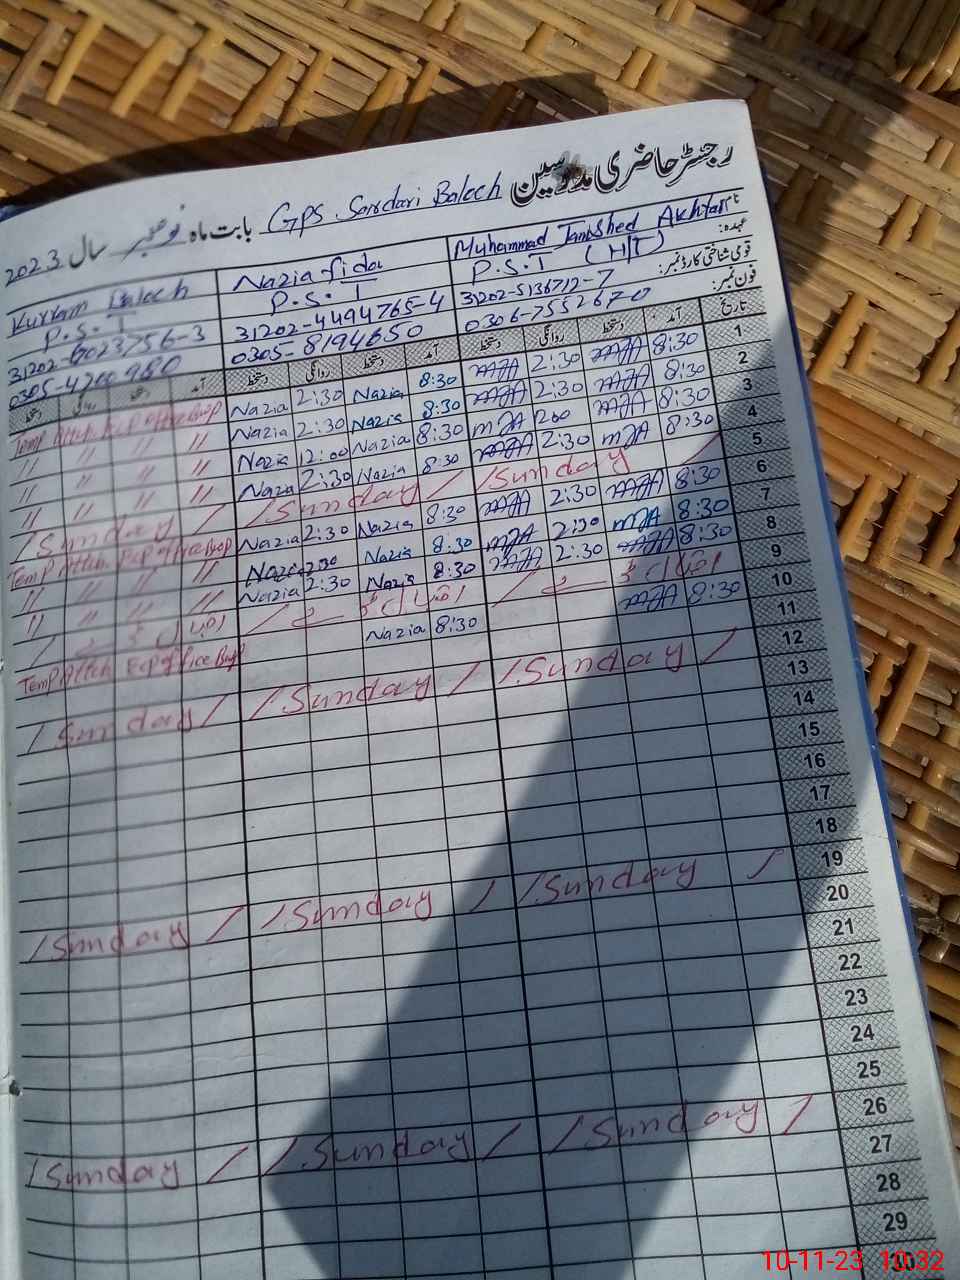 رجسٹر حاضری مدرسین
GPS Sardari Baloch بابت ماہ نومبر سال 2023
نام
عہدہ:
قومی شناختی کارڈ نمبر:
فون نمبر:
Muhammad Jamshed Akhtar
P.S.T (HT)
31202-5136712-7
0306-7552670
Nazia fida
P.S.T
31202-4494765-4
0305-8194650
Kurram Baloch
P.S.T
31202-6023756-3
تاریخ آمد دستخط روانگی دستخط آمد دستخط روانگی دستخط آمد دستخط روانگی دستخط
1 8:30 MJA 2:30 MJA 8:30 Nazia 2:30 Nazia
2 8:30 MJA 2:30 MJA 8:30 Nazia 2:30 Nazia 〃 〃 〃 〃
3 8:30 MJA MJA 8:30 Nazia 12:00 Nazia 〃 〃 〃 〃
4 8:30 MJA 2:30 MJA 8:30 Nazia 2:30 Nazia 〃 〃 〃 〃
5 / Sunday / / Sunday / / Sunday /
6 8:30 MJA 2:30 MJA 8:30 Nazia 2:30 Nazia
7 8:30 MJA 2:30 MJA 8:30 Nazia 2:30 Nazia 〃 〃 〃 〃
8 8:30 MJA 2:30 MJA 8:30 Nazia 2:30 Nazia 〃 〃 〃 〃
9 اقبال ڈے اقبال ڈے اقبال ڈے
10 8:30 MJA 8:30 Nazia
11
12 / Sunday / / Sunday / / Sunday /
13
14
15
16
17
18
19 / Sunday / / Sunday / / Sunday /
20
21
22
23
24
25
26 / Sunday / / Sunday / / Sunday /
27
28
29
30
10-11-23 10:32